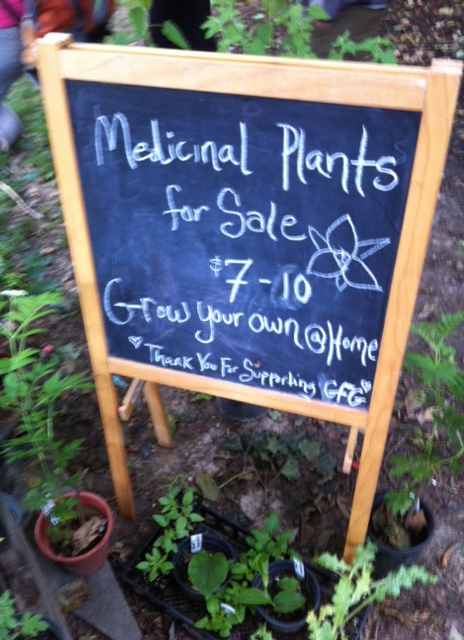 Medicinal Plants
for Sale
$7-10
Grow your own @ Home
♡ Thank You For Supporting GFG ♡